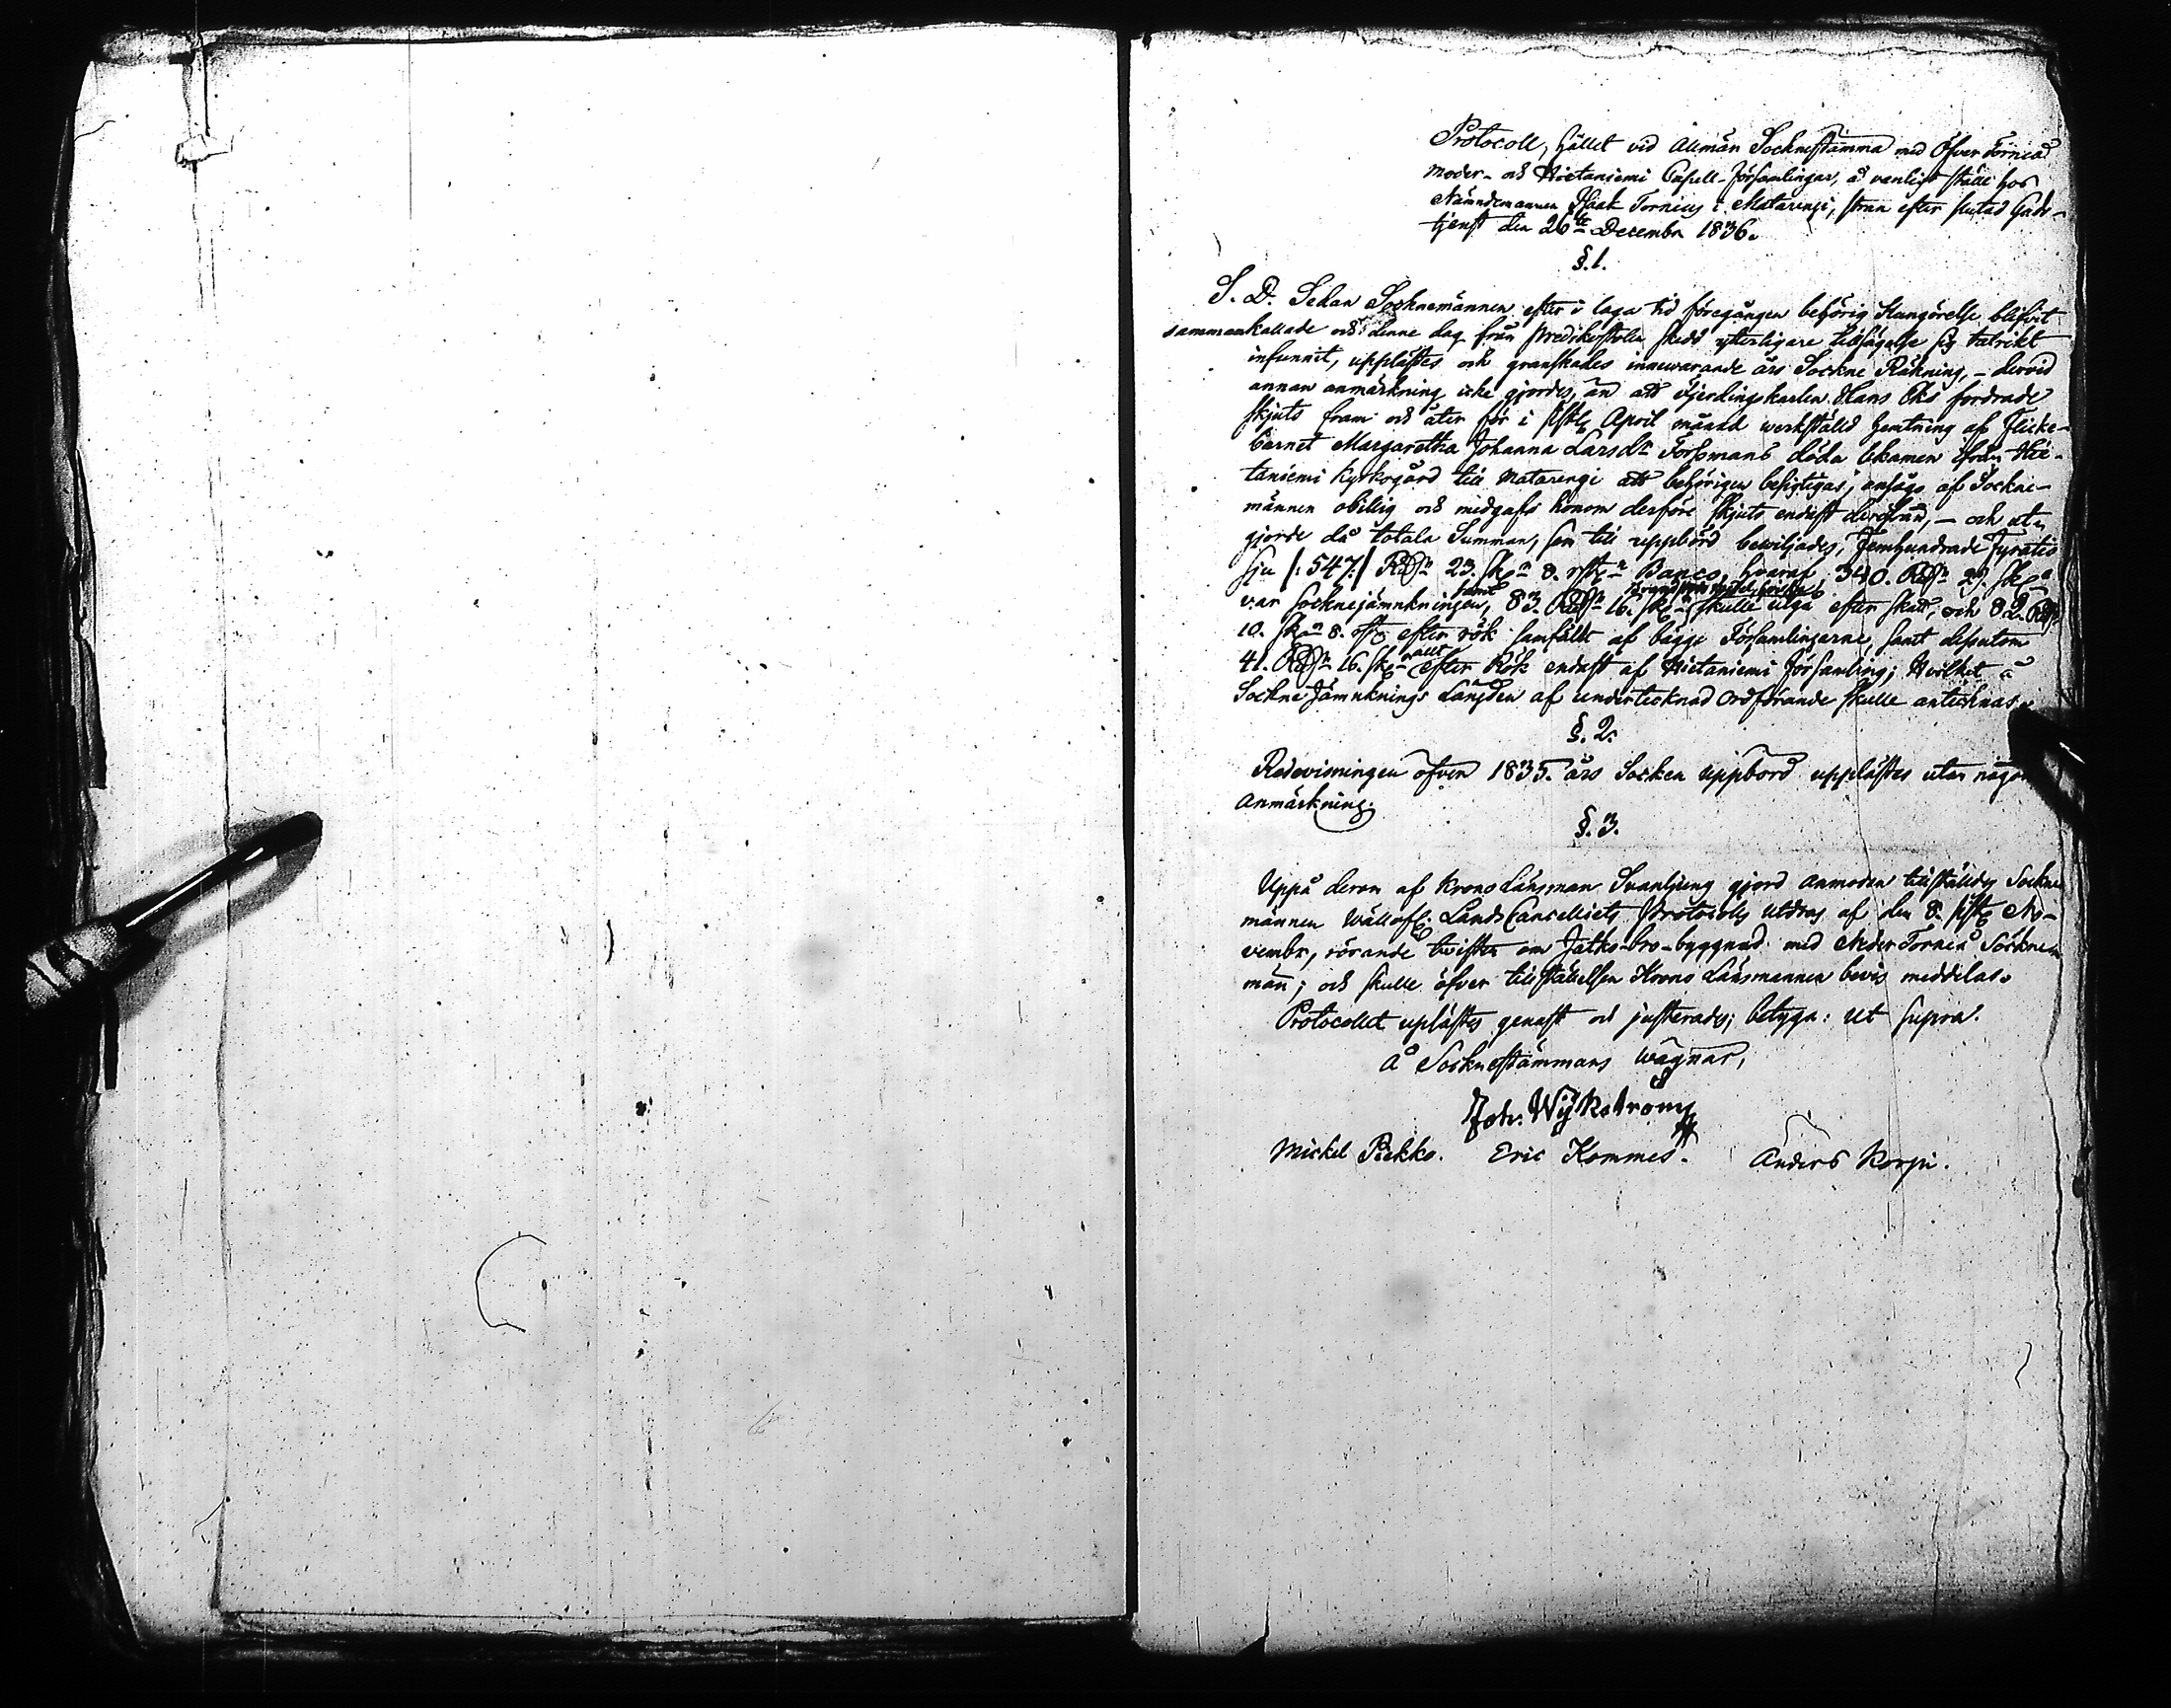 Protocoll, hållet vid allmän Sockenstämma med Öfver Torneå
Moder- och Hietaniemi Capell-Församlingar, å vanligt ställe hos
Nämndemannen Isaak Tornius i Matarengi, straxt efter slutad Guds-
tjenst den 26te Decembr 1836.
§.1.
S. D. Sedan Socknemännen efter i laga tid föregången behörig Kungörelse blifvit
sammankallade och denne dag från Predikstolen skedd ytterligare tillsägelse sig talrikt
infunnit, upplästes och granskades innewarande års Sockne Räkning, - dervid
annan anmärkning icke gjordes, än att Fjerdingskarlen Hans Oks fordrade
skjuts fram och åter för i sistl. April månad werkställd hemtning af Flicke-
barnet Margaretha Johanna Larsdr Forssmans döda lekamen ifrån Hie-
taniemi Kyrkogård till Matarengi att behörigen besigtigas; ansågs af Sockne-
männen obillig och medgafs honom derföre skjuts endast derifrån, - och ut-
gjorde då totala Summan, som till uppbörd bewiljades, Femhundrade Fyratio
sju /:547:/ Rdr 23. sk. 8. rst. Banco, hvaraf, 340. Rdr 29. sk.
var Socknejämnkningen, samt 83. Rdr 16. sk. skulle utgå efter skatt, och 82. Rdr
10. sk. 8. rst. efter rök samfäldt af bägge Församlingarne, samt dessutom
41. Rdr 16. sk. allt efter Rök endast af Hietaniemi Församling; Hvilket å
Sockne Jämnknings Längden af undertecknad Ordförande skulle antecknas.
§. 2.
Redovisningen öfver 1835. års Socken uppbörd upplästes utan någon
anmärkning.
§. 3.
Uppå derom af Krono Länsman Svanljung gjord anmodan tillställdes Sockne
männen Wällofl. Lands Cancelliets Protocolls Utdrag af den 8. sistl. No-
vembr, rörande twisten om Jatko-bro-byggnad med Neder Torneå Sockne
män; och skulle öfver tillställelsen Krono Länsmannen bevis meddelas.
Protocollet uplästes genast och justerades; betyga: Ut supra.
å Socknestämmans wägnar,
Joh. Wijkström
Mickel Pekko. Eric Kommes. Anders Korpi.